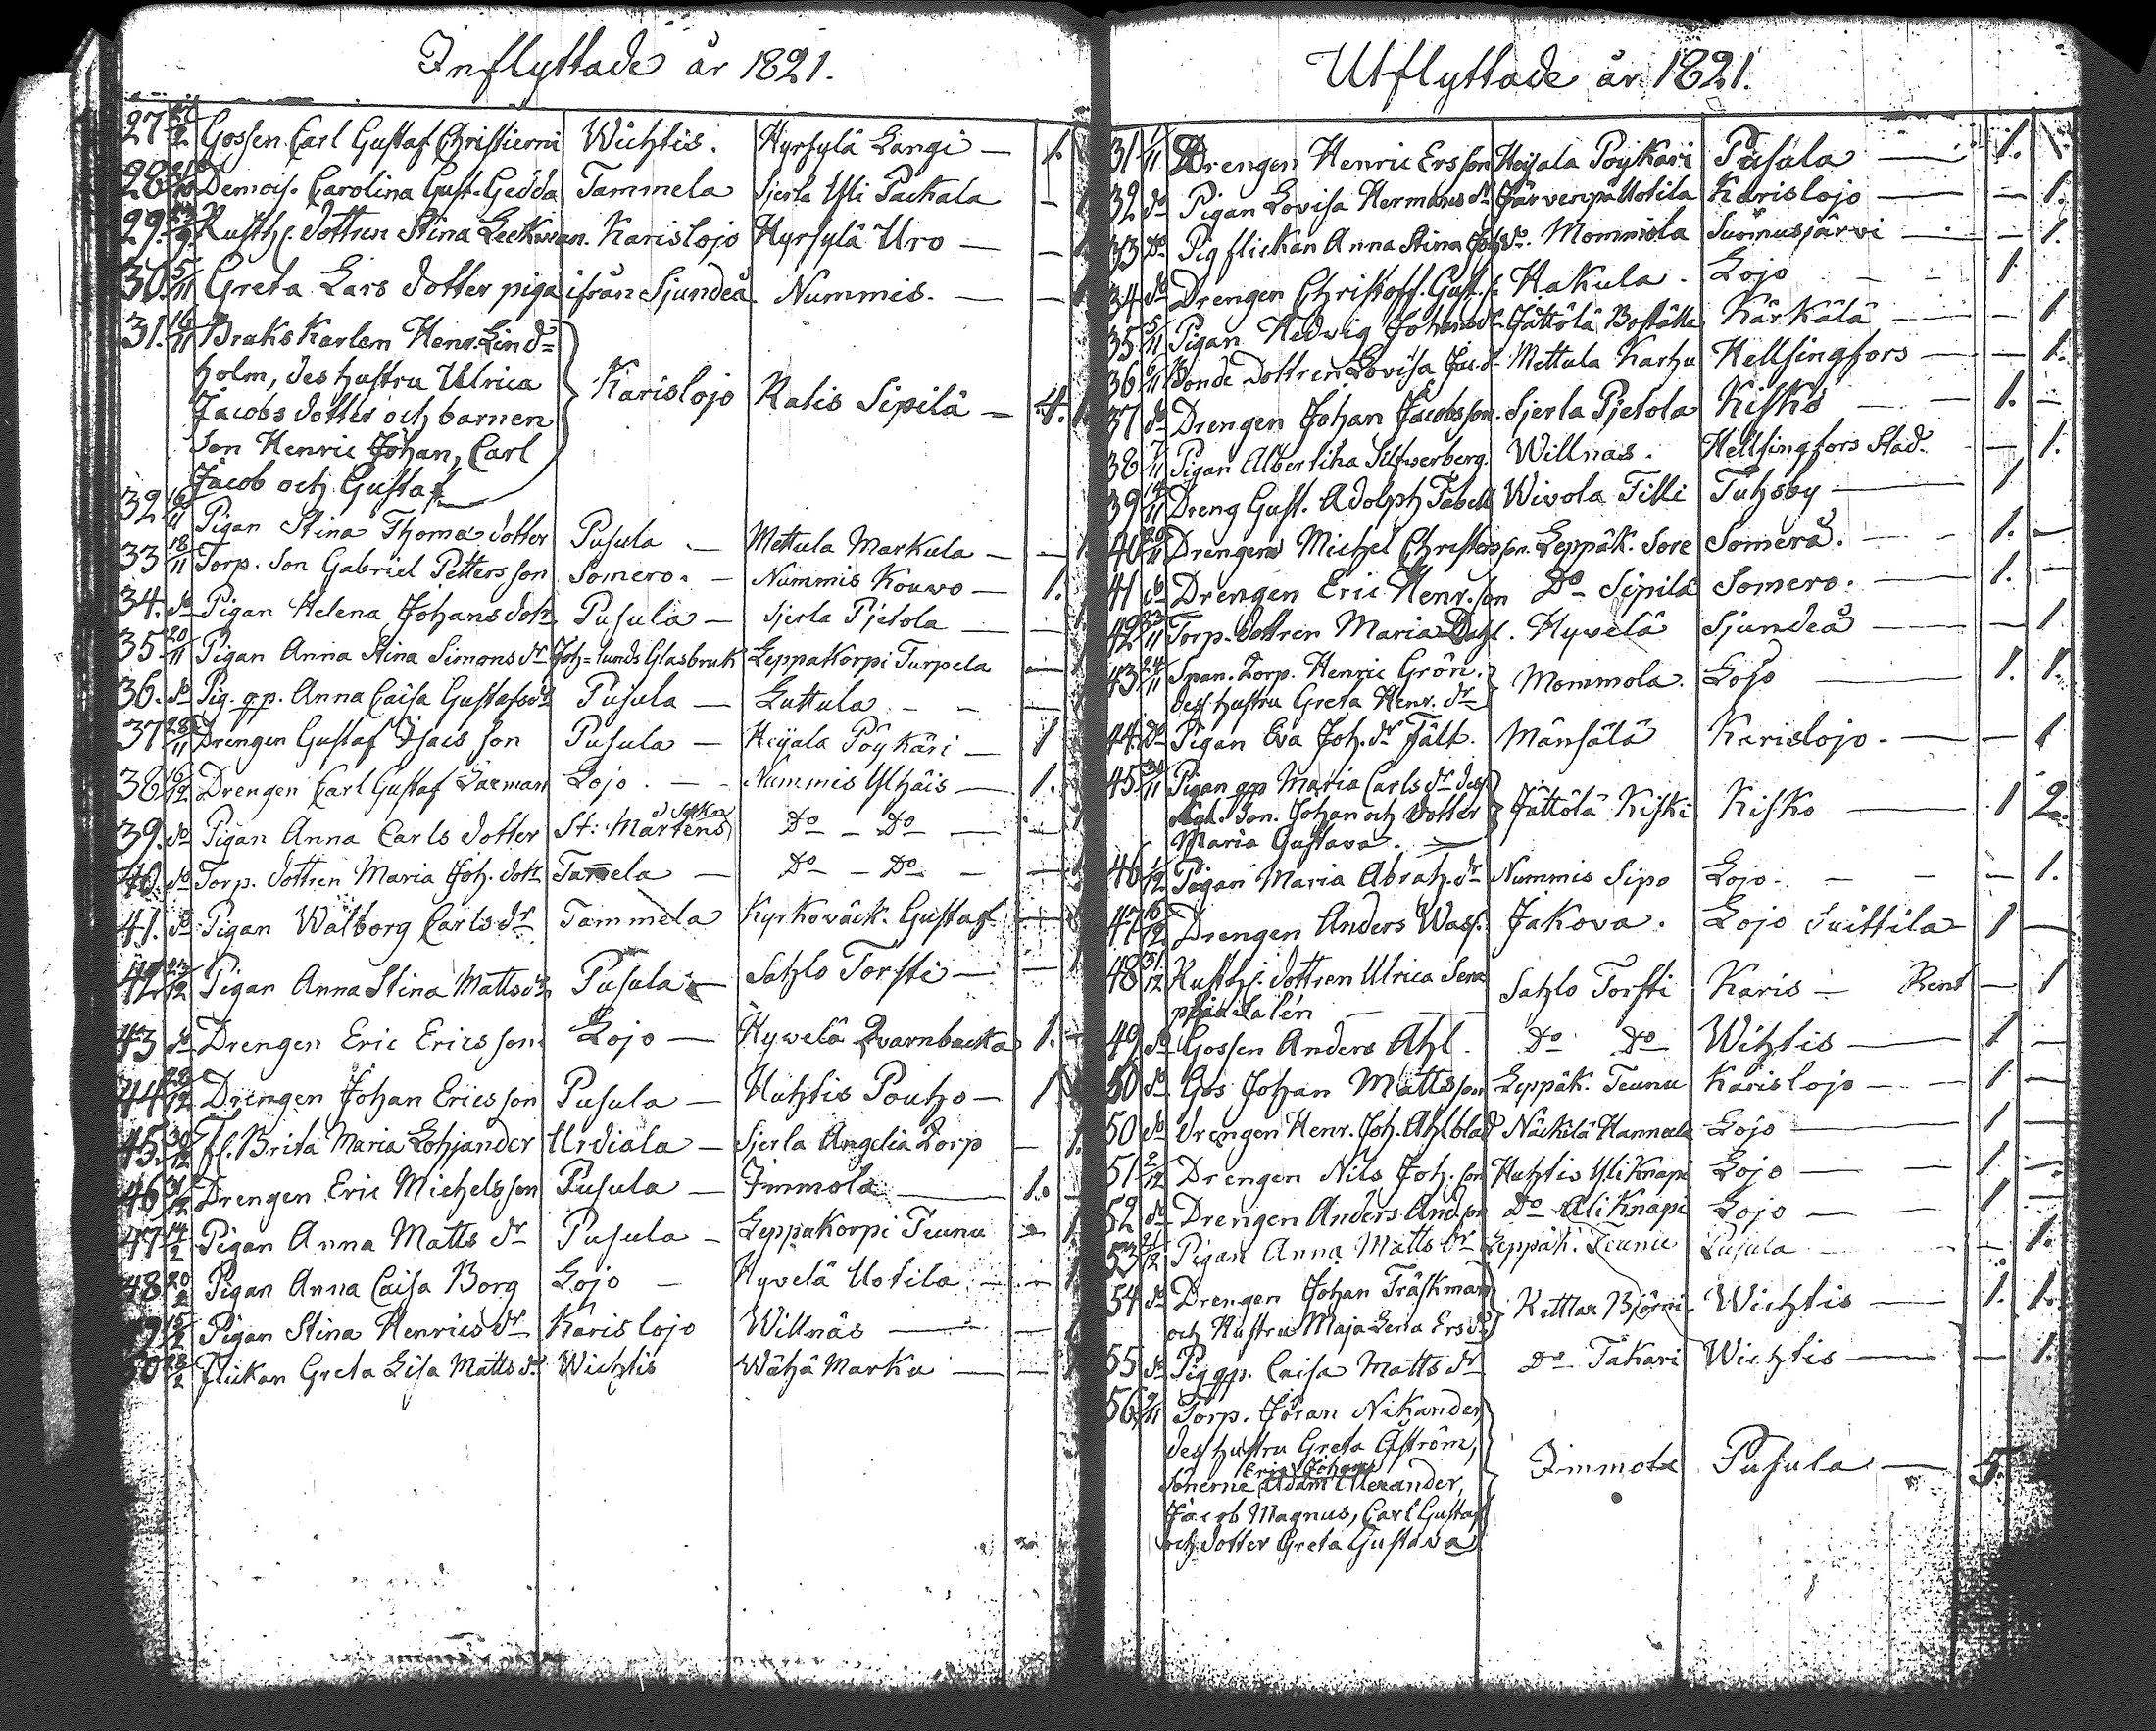 Inflyttade år 1821.
27 2 Gossen Carl Gustaf Christierni Wichtis. Hyrsylä Langi — 1.
28 Demois. Carolina Gust. Gedda Tammela Sjerla Yli Packala —
29. 9 Rusth. dottren Stina Leekman. Karislojo Hyrsylä Uro — —
30. 5/11 Greta Lars dotter piga ifrån Sjundeå. Nummis. — —
31. 16/11 Bruks Karlen Henr. Lind=
holm, des hustru Ulrica
Jacobs dotter och barnen Karislojo Ratis Sipilä — 4.
Son Henric Johan, Carl
Jacob och Gustaf
32 16/11 Pigan Stina Thomæ dotter Pusula — Mettula Markula — —
33 18/11 Torp. Son Gabriel Petters son Somero. — Nummis Kouvo — 1.
34. do Pigan Helena Johans dotr Pusula — Sjerla Pjetola — —
35 20/11 Pigan Anna Stina Simons dr Joh=lunds Glasbruk Leppakorpi Turpela —
36. do Pig. qp. Anna Caisa Gustafsdr Pusula — Luttula — — —
37 28/11 Drengen Gustaf Isacs son Pusula — Heijala Pöykäri — 1
38 16/12 Drengen Carl Gustaf Jarman Lojo. — — Nummis Ylhäis — 1.
39. do Pigan Anna Carls dotter St: Martens Do — Do — —
40. do Torp. dottren Maria Joh. dotr Tam̄ela — Do — Do — —
41. do Pigan Walborg Carls dr Tammela Kyrkoväck. Gustafs —
42 23/12 Pigan Anna Stina Mattsdr Pusula — Sahlo Torsti — —
43 do Drengen Eric Erics son Lojo — Hyvelä Qvarnbacka 1. —
44 28/12 Drengen Johan Erics son Pusula — Huhtis Pouho — 1
45. 30/12 Fl. Brita Maria Lohjander Urdiala — Sjerla Angelia Torp —
46 31/12 Drengen Eric Michels son Pusula — Immola — 1.
47 14/2 Pigan Anna Matts dr Pusula — Leppakorpi Teunu —
48 20/2 Pigan Anna Caisa Borg Lojo — Hyvelä Uotila — —
49 15/2 Pigan Stina Henrics dr Karislojo Willnäs — —
50 28/2 flickan Greta Lisa Matts dr Wichtis Wähä Marku — —
Utflyttade år 1821.
31 1/11 Drengen Henric Ers son Heijala Poykäri Pusula — 1.
32 do Pigan Lovisa Hermans dr Järvenpä Uotila Karislojo — — 1.
33 do Pig flickan Anna Stina Joh dr. Mommola Suomusjärvi — — 1.
34 do Drengen Christoff. Gust. s. Hakula. Lojo — — 1
35 5/11 Pigan Hedvig Johans dr Jättölä Boställe Kärkälä — — 1
36 6/11 Bonde dottren Lovisa Jac. dr Mettula Karhu Hellsingfors — — 1.
37 do Drengen Johan Jacobsson. Sjerla Pjetola Kisko — — 1. —
38 7/11 Pigan Albertina Silfwerberg. Willnäs. Hellsingfors Stad. — 1.
39 14/11 Dreng Gust. Adolph Tabell Wivola Tilli Tuhsby — 1
40 20/11 Drengen Michel Christersson. Leppäk. Sore Somero. — 1. —
41 do Drengen Eric Henr. son Do Sipilä Somero. — 1. —
42 23/11 Torp. dottren Maria Dahl. Hyvelä Sjundeå — — 1
43 24/11 Span. Torp. Henric Grön.
des hustru Greta Henr. dr Mommola. Lojo — 1. 1.
44 do Pigan Eva Joh. dr Fält. Mänsälä Karislojo. — — 1
45 11 Pigan qp Maria Carls dr des
Son. Johan och dotter Jättölä Kiski Kisko — 1 2
Maria Gustava.
46 1/12 Pigan Maria Abrah. dr Nummis Sipo Lojo. — — — 1.
47 6/12 Drengen Anders Wass. Jakova. Lojo Suittila 1 —
48 31/12 Rusth. dottren Ulrica Sera
phia Salén Sahlo Torsti Karis — — 1
49 do Gossen Anders Ahl. Do Do Wihtis — 1 —
50 do Gos Johan Mattsson Leppäk. Teunu Karislojo — — 1 —
50 do drengen Henr. Joh. Ahlblad Näckilä Hannula Lojo — 1 —
51 2/12 Drengen Nils Joh. son Huhtis Yli Knapi Lojo — — 1 —
52 do Drengen Anders And.son Do Ali Knapi Lojo — — 1 —
53 21/12 Pigan Anna Matts dr Leppäk. Teunu Pusula — — 1.
54 do Drengen Johan Träskman
och Hustru Maja Lena Ers dr Kettlax Björni Wichtis — 1. 1.
55 do Pig qp. Caisa Matts dr Do Takari Wichtis — — 1.
56 9/11 Torp. Jöran Nikander,
des hustru Greta Åström,
Eric Johan
Sönerne Adam Alexander, Immola Pusula — 5.
Jacob Magnus, Carl Gustaf
och dotter Greta Gustava